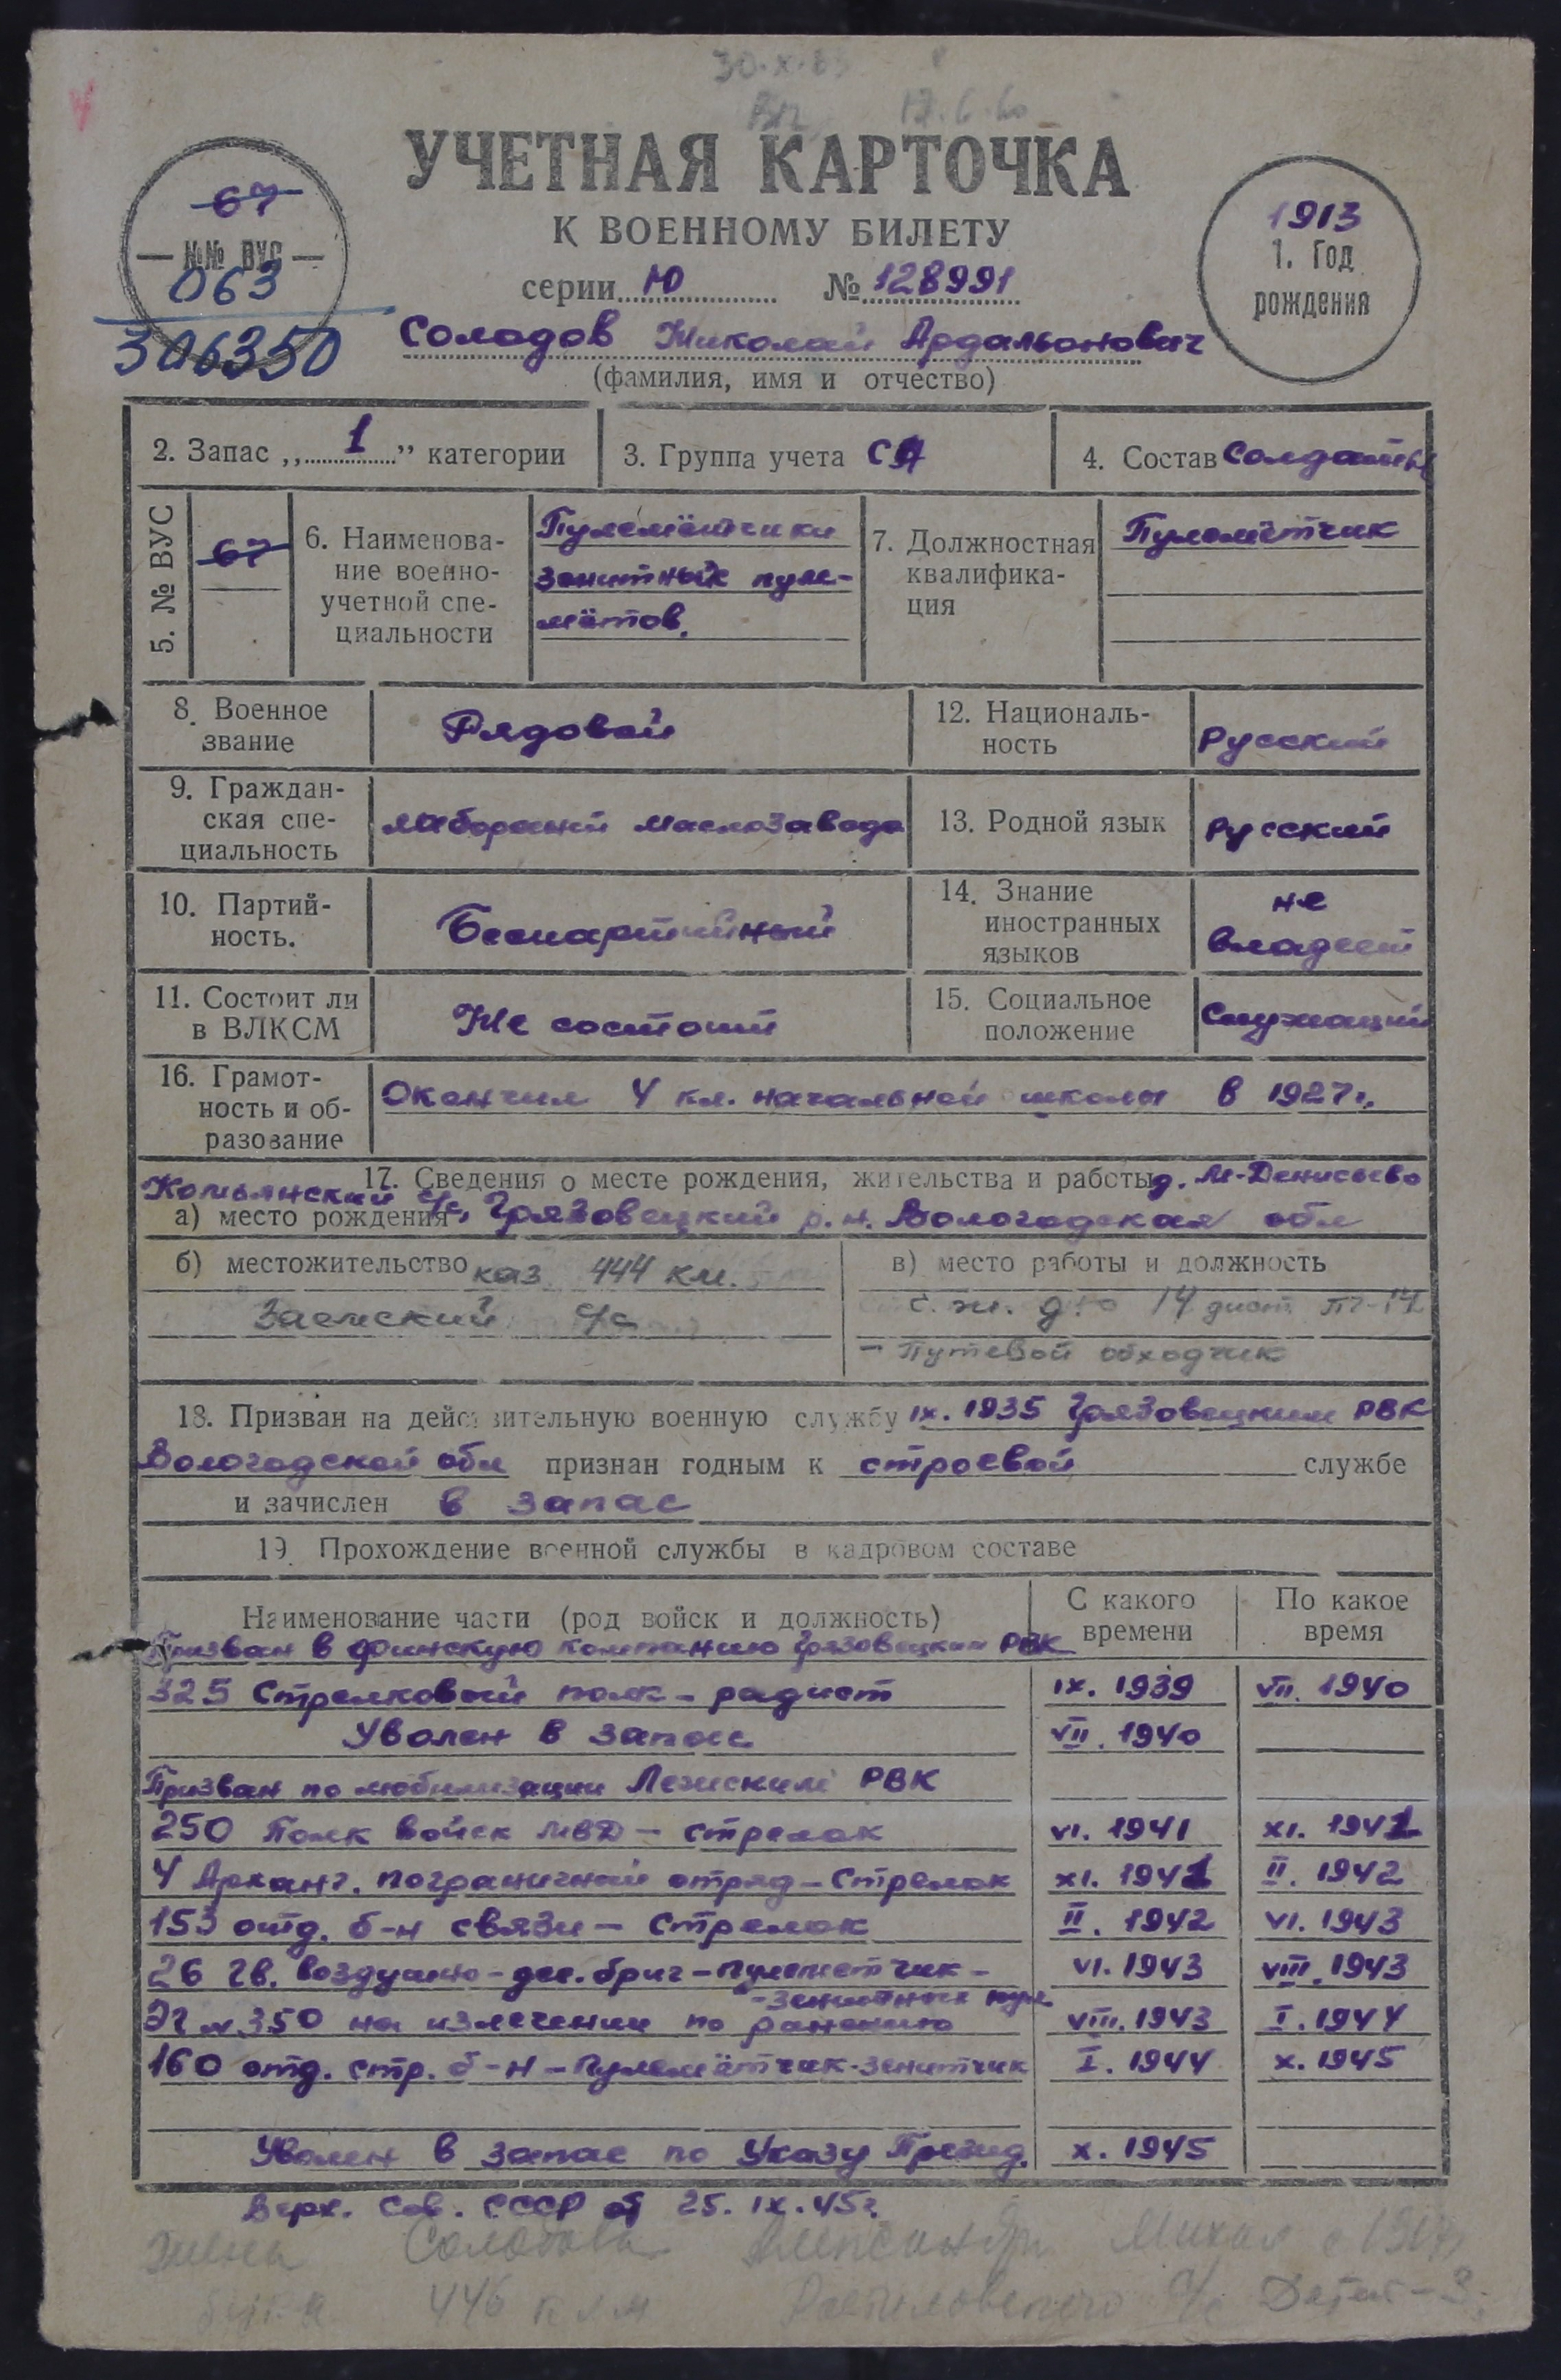 30.X.63
17.6.60
УЧЕТНАЯ КАРТОЧКА
К ВОЕННОМУ БИЛЕТУ
серии Ю № 128991
67
№№ ВУС
063
306350
1913
1. Год
рождения
Солодов Николай Ардальонович
(фамилия, имя и отчество)
2. Запас „1” категории
3. Группа учета СА
4. Состав Солдаты
5. № ВУС
67
6. Наименова-
ние военно-
учетной спе-
циальности
Пулемётчики
зенитных пуле-
мётов.
7. Должностная
квалифика-
ция
Пулемётчик
8. Военное
звание
Рядовой
12. Националь-
ность
Русский
9. Граждан-
ская спе-
циальность
Лаборант маслозавода
13. Родной язык
Русский
10. Партий-
ность.
Беспартийный
14. Знание
иностранных
языков
не
владеет
11. Состоит ли
в ВЛКСМ
Не состоит
15. Социальное
положение
Служащий
16. Грамот-
ность и об-
разование
Окончил 4 кл. начальной школы в 1927г.
17. Сведения о месте рождения, жительства и работы д. М-Денисьево
Комьянский с/с,
а) место рождения Грязовецкий р.н. Вологодская обл
б) местожительство каз 444 км.
Заемский с/с
в) место работы и должность
с. ж. д. 14 дист ПЧ-14
- Путевой обходчик
18. Призван на действительную военную службу IX. 1935 Грязовецким РВК
Вологодской обл признан годным к строевой службе
и зачислен в запас
19. Прохождение военной службы в кадровом составе
Наименование части (род войск и должность)
С какого
времени
По какое
время
Призван в финскую компанию Грязовецким РВК
325 Стрелковый полк - радист IX. 1939 VII. 1940
Уволен в запас VII. 1940
Призван по мобилизации Лежским РВК
250 Полк войск МВД - стрелок VI. 1941 XI. 1941
4 Арханг. пограничный отряд - Стрелок XI. 1941 II. 1942
153 отд. б-н связи - Стрелок II. 1942 VI. 1943
26 гв. воздушно-дес. бриг - пулеметчик - VI. 1943 VIII. 1943
- зенитных пул
ЭГ № 350 на излечении по ранению VIII. 1943 I. 1944
160 отд. стр. б-н - Пулемётчик-зенитчик I. 1944 X. 1945
Уволен в запас по Указу Презид. X. 1945
Верх. Сов. СССР от 25. IX. 45г.
жена Солодова Александра Михал с
446 км с/с Детей - 3.